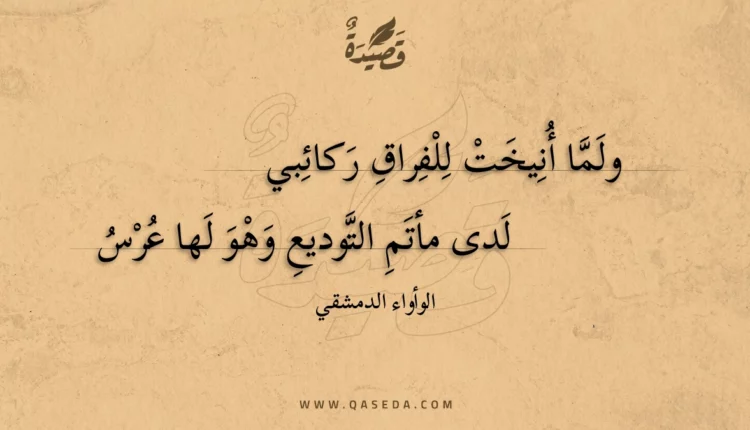 قَصِيدَةٌ
ولَمَّا أُنِيخَتْ لِلْفِراقِ رَكائِبي
لَدى مأتَمِ التَّوديعِ وَهْوَ لَها عُرْسُ
الوأواء الدمشقي
WWW.QASEDA.COM